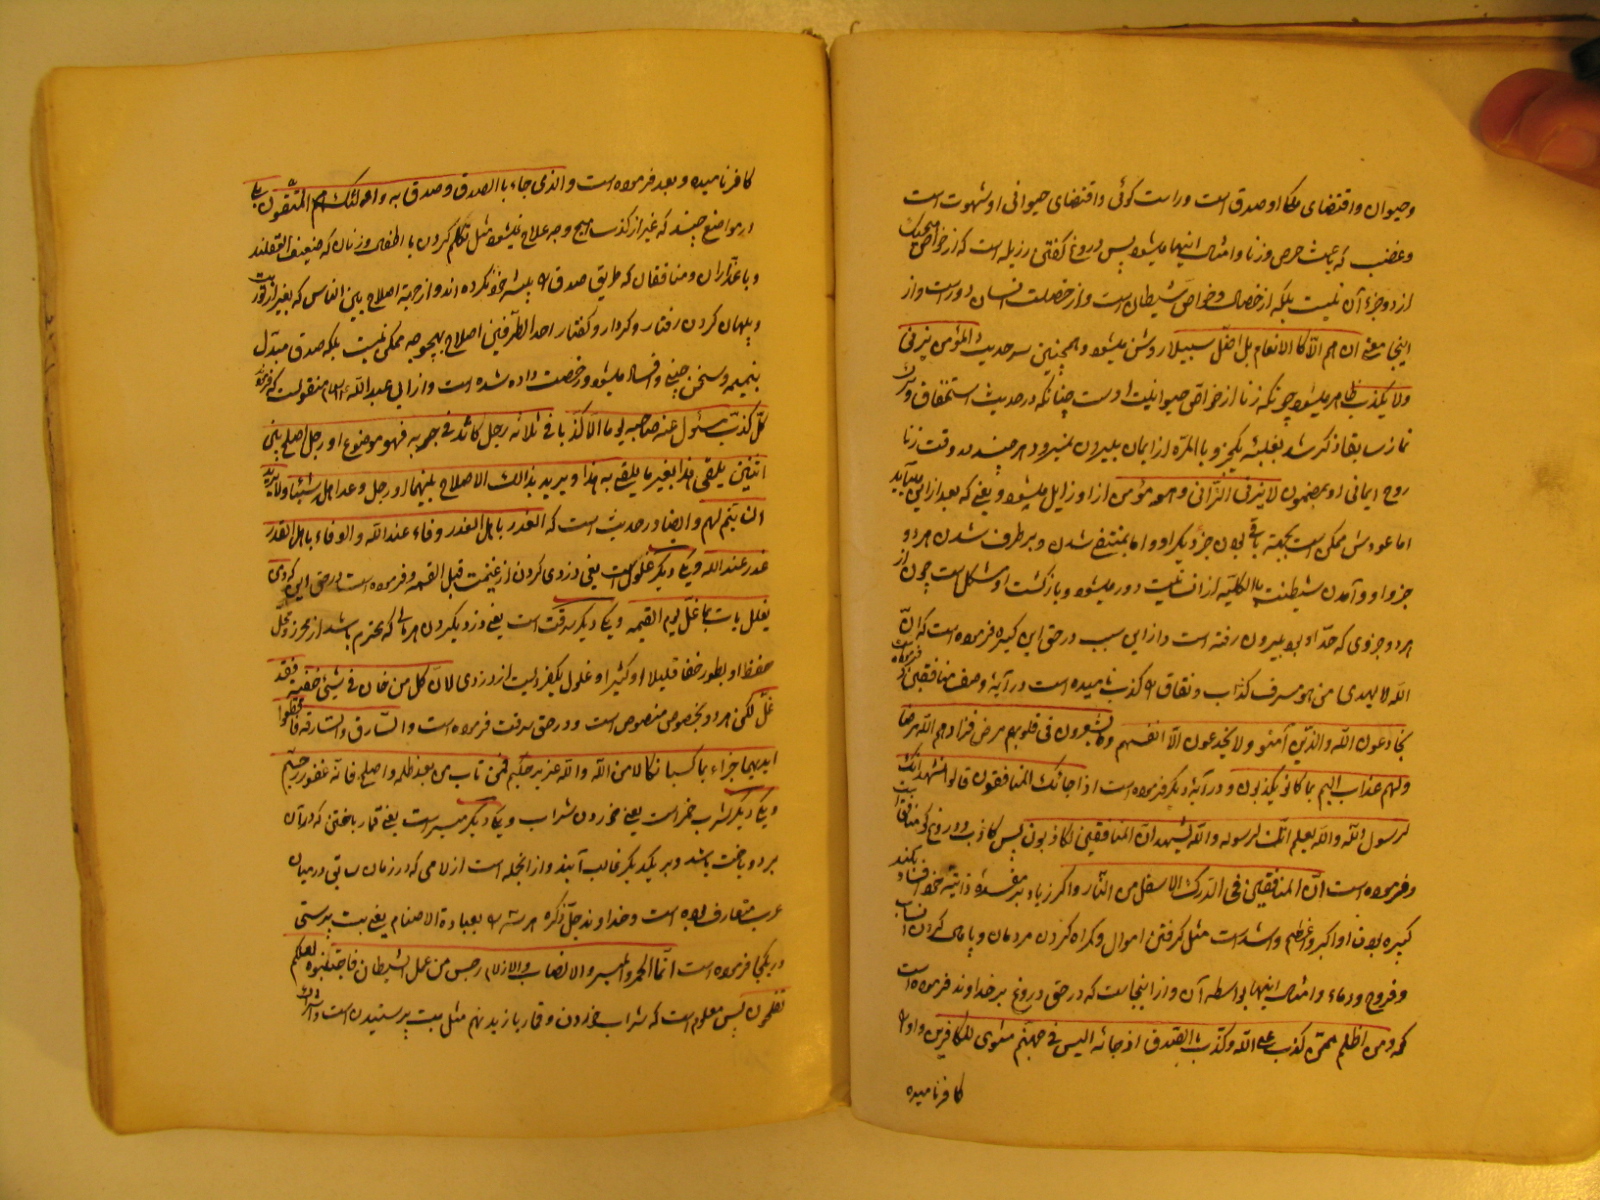 وحیوان واقتضای ملکا او صدق است وراست کوئی واقتضای حیوانی او شهوت است
وغضب که باعث حرص وزنا وامثال اینها میشود پس دروغ کفتن رزیله است که از خواص هیچیک
از دو جزء آن نیست بلکه از خصال وخواص شیطان است واز خصلت انسان دور است واز
اینجا معنی ان هم الا کالانعام بل اضل سبیلا روشن میشود وهمچنین سر حدیث المؤمن یزنی
ولا یکذب ظاهر میشود چونکه زنا از خواص حیوانیت اوست چنانکه در حدیث است
روح ایمانی او بمضمون لا یزنی الزانی وهو مؤمن از او زایل میشود ویعنی که بعد از این میآید
اما عودش ممکن است بجهة باقی بودن جزء دیکر او واما بمنتفی شدن وبر طرف شدن هر دو
جزو او وآمدن شیطنت بالکلیه از انسانیت دور میشود وبازکشت او مشکل است چون از
هر دو جزوی که حد او بود بیرون رفته است واز این سبب در حق این کبیره فرموده است که ان
الله لا یهدی من هو مسرف کذاب ونفاق را کذب نامیده است در آیۀ وصف منافقین که فرموده
یخادعون الله والذین آمنو ولا یخدعون الا انفسهم وما یشعرون فی قلوبهم مرض فزادهم الله مرضا
ولهم عذاب الیم بما کانو یکذبون ودر آیۀ دیکر فرموده است اذا جائک المنافقون قالو انشهد انک
لرسول الله والله یعلم انک لرسوله والله یشهد ان المنافقین لکاذبون پس کاذب ودروغ کو منافق است
وفرموده است ان المنافقین فی الدرک الاسفل من النار واکر زیاد بر مفسدۀ ذاتیۀ خود افساد بکند
کبیره بودن او اکبر واعظم واشد است مثل کرفتن اموال وکمراه کردن مردمان وپامال کردن انساب
وفروج ودماء وامثال اینها بواسطه آن واز اینجاست که در حق دروغ بر خداوند فرموده است
که ومن اظلم ممن کذب علی الله وکذب بالصدق اذ جائه الیس فی جهنم مثوی للکافرین واو را
کافر نامیده
کافر نامیده وبعد فرموده است والذی جاء بالصدق وصدق به واولئک هم المتقون بلی
در مواضع چند که غیر از کذب هیچ وجه علاج نمیشود مثل تکلم کردن با اطفال وزنان که ضعیف العقلند
وبا غداران ومنافقان که طریق صدق را پیشه خود نکرده اند واز جهة اصلاح بین الناس که بغیر از توریت
وپنهان کردن رفتار وکردار وکفتار احد الطرفین اصلاح بهیچوجه ممکن نیست بلکه صدق مبتدل
بنمیمه وسخن چینی وافساد میشود رخصت داده شده است واز ابی عبدالله ع منقولست که فرموده
کل کذب مسئول عنه صاحبه یوما الا کذبا فی ثلاثه رجل کائد فی حربه فهو موضوع او رجل اصلح بین
اثنین یلقی هذا بغیر ما یلقی به هذا ویرید بذالک الاصلاح بینهما او رجل وعد اهل شیئا ولا یرید
ان یتم لهم وایضا در حدیث است که الغدر باهل الغدر وفاء عند الله والوفاء باهل الغدر
غدر عند الله ویک دیکر غلول است یعنی دزدی کردن از غنیمت قبل القسمه وفرموده است در حق این که ومن
یغلل یات بما غل یوم القیمه ویک دیکر سرقت است یعنی دزدی کردن هر مالی که محترم باشد از محرز ومحل
حفظ او بطور خفا قلیلا او کثیرا وغلول یکفردیست از دزدی لان کل من خان فی شیئ خفیة فقد
غل لکن هر دو بخصوص منصوص است ودر حق سرقت فرموده است والسارق والسارقة فاقطعوا
ایدیهما جزاء بما کسبا نکالا من الله والله عزیز حکیم فمن تاب من بعد ظلمه واصلح فانه غفور رحیم
ویک دیکر شرب خمر است یعنی خوردن شراب ویک دیکر میسر است یعنی قمار باختن که در آن
برد وباخت باشد وبر یکدیکر غالب آیند واز انجمله است ازلامی که در زمان سابق در میان
عرب متعارف بوده است وخداوند جل ذکره هر سه را بعبادة الاصنام یعنی بت پرستی
در یکجا فرموده است انما الخمر والمیسر والانصاب والازلام رجس من عمل الشیطان فاجتنبوه لعلکم
تفلحون پس معلوم است که شراب خوردن وقمار بازیدن هم مثل بت پرستیدن است